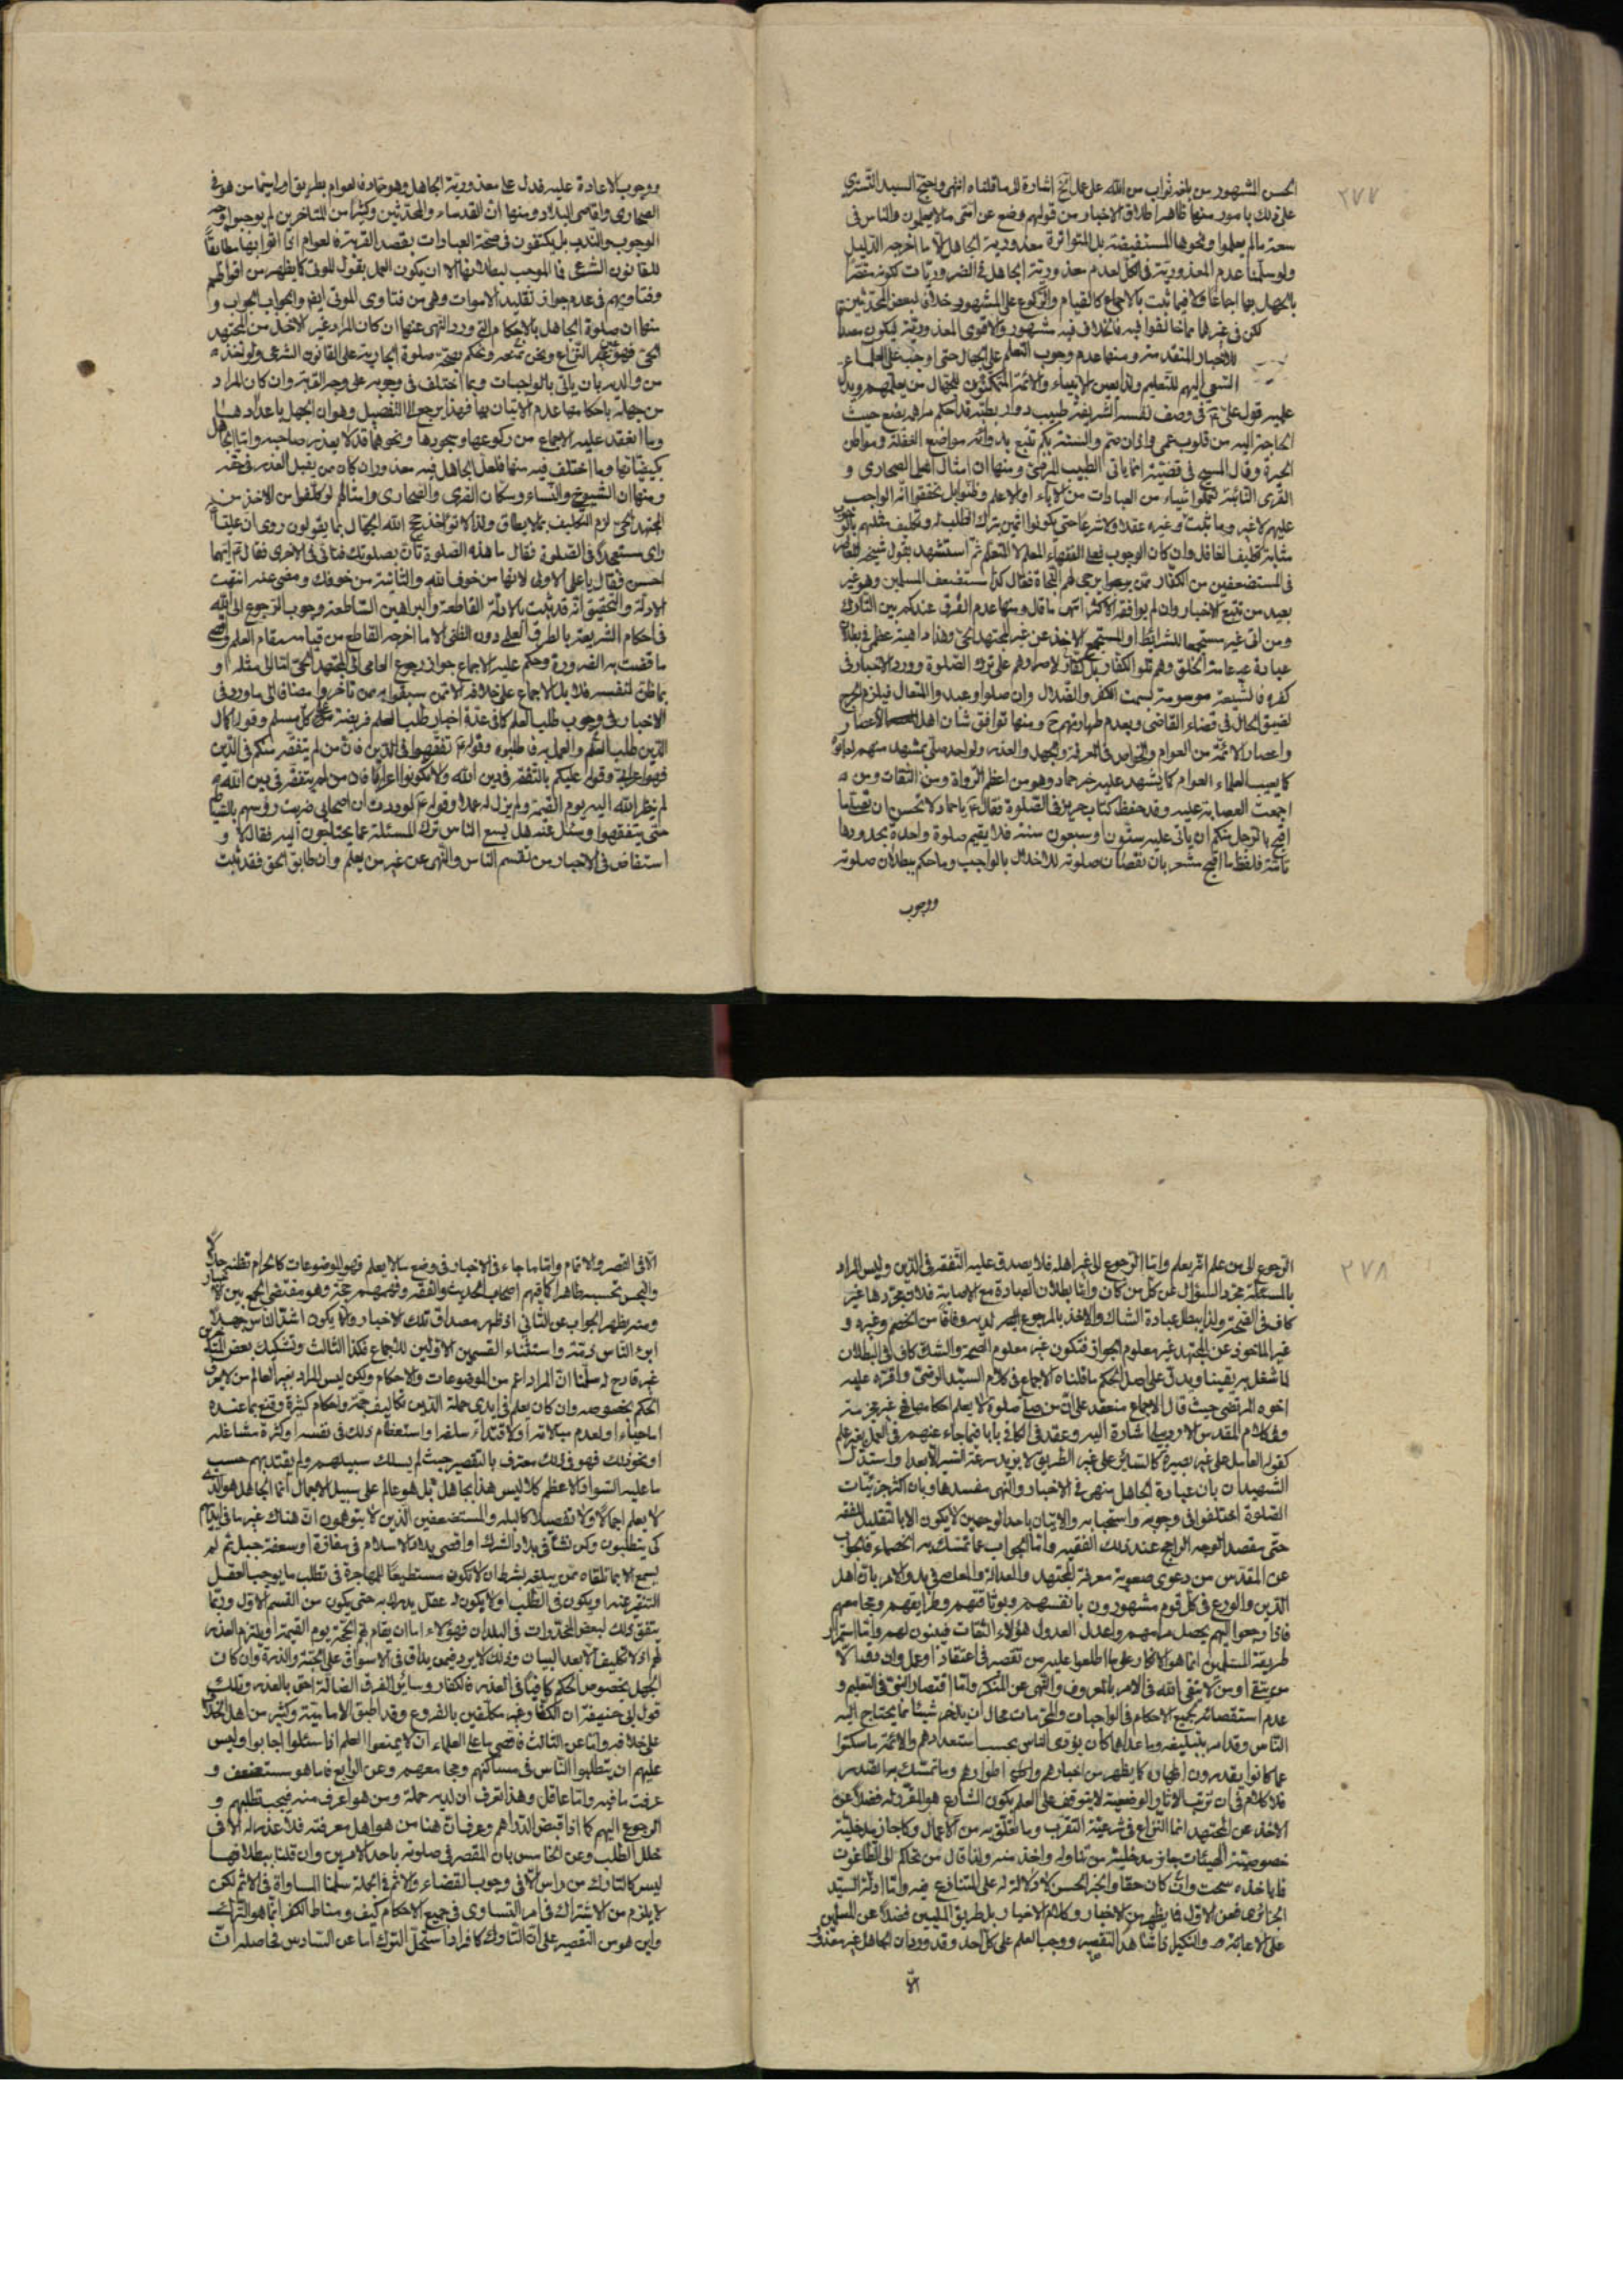 ٢٧٧
الحسن المشهور من بلغه ثواب من الله على عمل الخ اشارة الى ما قلناه انتهى واحتج السيد التستري
على ذلك بامور منها ظاهر اطلاق الاخبار من قولهم وضع عن امتى ما لا يعلمون والناس في
سعة ما لم يعلموا ونحوها المستفيضة بل المتواترة معذورية الجاهل الا ما اخرجه الدليل
ولو سلمنا عدم المعذورية في الكل لعدم معذورية الجاهل في الضروريات ككونه مقصرا
بالجهل بها اجماعا وكلا فيما ثبت بالاجماع كالقيام والركوع على المشهور خلافا لبعض المحدثين
لكن في غيرها مما خالفوا فيه فالخلاف فيه مشهور والاقوى المعذورية ليكون
للاخبار المتقدمة ومنها عدم وجوب التعلم على الجهال حتى اوجب على العلماء
السعى اليهم للتعليم ولذا يعين الانبياء والائمة للجهال من يعلمهم ويدل
عليه قول علي ع في وصف نفسه الشريفة طبيب دوار بطبه قد احكم مراهمه يضع حيث
الحاجة اليه من قلوب عمى واذان صم والسنة بكم تتبع بدوائه مواضع الغفلة ومواطن
الحيرة وقال المسيح في قضيته انما ياتى الطبيب المرضى ومنها ان امثال اهل الصحارى و
القرى النائية تعلموا شيئا من العبادات من الآباء او المعلم وظنوا بل تحققوا انه الواجب
عليهم لا غير وما ثبت وغيره عقلا ولا شرعا حتى يكونوا اثمين بترك الطلب له وتكليف مثلهم
مثابة تكليف الغافل وان كان الوجوب فعلى الفقهاء المعلم لا المتعلم ثم استشهد بقول شيخه المعاصر
في المستضعفين من الكفار ممن يرجى لهم النجاة فقال كذا مستضعف المسلمين وهو غير
بعيد من تتبع الاخبار وان لم يوافقه الاكثر انتهى ما قال ومنها عدم الفرق عندكم بين التارك
ومن اتى غير مستجمع للشرائط او المستجمع الاخذ عن غير المجتهد الحى وهذا داهية عظمى في بطلان
عبادة عامة الخلق وهم تلو الكفار بل كفار لاصرارهم على ترك الصلوة وورود الاخبار في
كفره فالشيعة موسومة بسمت الكفر والضلال وان صلوا وعبدوا المتعال فيلزم الحرج
لضيق الحال في قضاء القاضي وبعدم طهارتهم ح ومنها توافق شان اهل الاعصار
واعصار الائمة من العوام والخواص في المعرفة والجهل والعذر ولو احد صلى بمشهد منهم لعابوا
كما يعيب العلماء العوام كما يشهد عليه خبر حماد وهو من اعظم الرواة ومن الثقات ومن
اجمعت العصابة عليه وقد حفظ كتاب حريز في الصلوة فقال ع يا حماد لا تحسن ان تصلى ما
اقبح بالرجل منكم ان ياتى عليه ستون او سبعون سنة فلا يقيم صلوة واحدة بحدودها
تامة فلفظ ما اقبح مشعر بان نقصان صلوته للاخلال بالواجب وما حكم ببطلان صلوته
ووجوب
ووجوب الاعادة عليه فدل على معذورية الجاهل وهو حماد فالعوام بطريق اولى سيما من هو في
الصحارى واقاصى البلاد ومنها ان القدماء والمحدثين وكثيرا من المتاخرين لم يوجبوا نية
الوجوب والندب بل يكتفون في صحة العبادات بقصد القربة فالعوام اذا اتوا بها مطابقا
للقانون الشرعى فما الموجب لبطلانها الا ان يكون العمل بقول الموتى كما يظهر من اقوالهم
وفتاويهم في عدم جواز تقليد الاموات وهى من فتاوى الموتى ايضا والجواب الجواب و
منها ان صلوة الجاهل بالاحكام التى ورد النهى عنها ان كان المراد غير الاخذ من المجتهد
الحى فهو عين النزاع ونحن نمنعه ونحكم بصحة صلوة الجارية على القانون الشرعى ولو اخذه
من والديه بان ياتى بالواجبات وبما اختلف في وجوبه على وجه القربة وان كان المراد
من جهله باحكامها عدم الاتيان بها فهذا يرجع الى التفصيل وهو ان الجهل باعداد
وما انعقد عليه الاجماع من ركوعها وسجودها ونحوهما قد لا يعذر صاحبه واما الجاهل
بكيفياتها وما اختلف فيه منها فلعل الجاهل فيه معذور وان كان من يقبل العذر في حقه
ومنها ان الشيوخ والنساء وسكان القرى والصحارى وامثالهم لو كلفوا من الاخذ من
المجتهد الحى لزم التكليف بما لا يطاق ولذا لا تؤاخذ حجج الله الجهال بما يقولون روى ان عليا
راى مستعجلا في الصلوة فقال ما هذه الصلوة تات بصلوتك فتانى في الاخرى فقال ع ايتهما
احسن فقال يا علي الاولى لانها من خوف الله والثانية من خوفك ومضى عنه انتهت
الادلة والتحقيق انه قد ثبت بالادلة القاطعة والبراهين الساطعة وجوب الرجوع الى الله
في احكام الشريعة بالطرق العلى دون الظنى الا ما اخرجه القاطع من قيامه مقام العلم
ما قضت به الضرورة وحكم عليه الاجماع جواز رجوع العامى الى المجتهد الحى لا الى مثله او
بما ظن لنفسه فلا بل الاجماع على خلافه الا ممن سبقوا به من تاخروا مضافا الى ما ورد في
الاخبار في وجوب طلب العلم كما في عدة اخبار طلب العلم فريضة على كل مسلم وقوله كمال
الدين طلب العلم والعمل به فاطلبوه وقوله ع تفقهوا في الدين فان من لم يتفقه منكم في الدين
فهو اعرابي وقوله عليكم بالتفقه في دين الله ولا تكونوا اعرابا فان من لم يتفقه في دين الله
لم ينظر الله اليه يوم القيمة ولم يزك له عملا وقوله ع لوددت ان اصحابى ضربت رؤسهم بالسياط
حتى يتفقهوا وسئل عنه هل يسع الناس ترك المسئلة عما يحتاجون اليه فقال لا و
استفاض في الاخبار من تقسيم الناس والنهى عن غير من يعلم وان طابق الحق فقد ثبت
٢٧٨
الرجوع الى من علم انه يعلم واما الرجوع الى غير اهله فلا يصدق عليه التفقه في الدين وليس المراد
بالمسئلة مجرد السؤال عن كل من كان واما بطلان العبادة مع الاصابة فلان مجردها غير
كاف في الصحة ولذا يبطل عبادة الشاك والاخذ بالمرجوع اليه لديه وفاقا من الخصم وغيره و
غير الماخوذ عن المجتهد غير معلوم الجواز فتكون غير معلوم الصحة والشك كاف في البطلان
لما شغل به يقينا ويدل على اصل الحكم ما قلناه الاجماع في كلام السيد الرضى واقره عليه
اخوه المرتضى حيث قال الاجماع منعقد على ان من صلى صلوة لا يعلم احكامها فهى غير مجزية
وفي كلام المقدس الاردبيلي اشارة اليه وعقد في الكافي بابا فيما جاء عنهم في العمل بغير علم
كقوله العامل على غير بصيرة كالسائر على غير الطريق لا يزيده سرعة السير الا بعدا واستدل
الشهيدان بان عبادة الجاهل منهى في الاخبار والنهى مفسدها وبان اكثر جزئيات
الصلوة اختلفوا في وجوبه واستحبابه والاتيان باحد الوجهين لا يكون الا بالتقليد للفقه
حتى مقصد الوجه الراجح عند ذلك الفقيه واما الجواب عما تمسك به الخصماء فالجواب
عن المقدس من دعوى صعوبة معرفة المجتهد والعدالة والمعاصر في بدو الامر بان اهل
الدين والورع في كل قوم مشهورون بانفسهم وبوثاقتهم وطرايقهم ومجامعهم
فاذا رجعوا اليهم يحصل مرامهم واعدل العدول هؤلاء الثقات فيبنون لهم واما استمرار
طريقة المسلمين انما هو الانكار على ما اطلعوا عليه من تقصير في اعتقاد او عمل وان وقع
من تقية او من لا يتقى الله في الامر بالمعروف والنهى عن المنكر واما اقتصار النبى في التعليم و
عدم استقصائه بجميع الاحكام في الواجبات والمحرمات محال ان يدخر شيئا مما يحتاج اليه
الناس وقد امر بتبليغه وما عداها كان يؤدى الناس بحسب استعدادهم والائمة ما سكتوا
عما كانوا يقدرون اظهاره كما يظهر من اخبارهم واطوارهم وما تمسك به المقدس
فلا كلام في ان ترتب الاثار الوضعية لا يتوقف على العلم بكون الشارع هو المقرر له فضلا عن
الاخذ عن المجتهد انما النزاع في شرعية التقرب وما يتعلق به من الاعمال وكما جاز مدخلية
خصوصية الهيئات جاز مدخلية من تناوله واخذ منه ولذا قال من تحاكم الى الطاغوت
فما ياخذه سحت وان كان حقا والخبر الحسن لا دلالة له على المتنازع فيه واما ادلة السيد
الجزائرى فعن الاول فما يظهر من الاخبار وكلام الاخيار بل طريق المليين فضلا عن المسلمين
على الاعانة والتنكيل في التقصير ووجب العلم على كل احد وقد دوران الجاهل غير معذور
الا
الا في القصر والاتمام واما ما جاء في الاخبار في وضع ما لا يعلم فهو الموضوعات كالحرام تظنه حلالا
والنجس تحسبه طاهرا كما فهم اصحاب الحديث والفقه وفهمهم حجة وهو مقتضى الجمع بين الاخبار
ومنه يظهر الجواب عن الثانى اذ ظهر مصداق تلك الاخبار ولا يكون اشتراك
ابوه الناس واستثناء القسمين الاولين للاجماع فكذا الثالث وتشكيك بعض
غير قادح له سلمنا ان المراد اعم من الموضوعات والاحكام ولكن ليس المراد بغير العالم من لا يعرف
الحكم بخصوصه وان كان يعلم في ايدى حملة الدين تكاليف جمة واحكام كثيرة وقنع بما عنده
اما حياء او لعدم مبالاته او لاقتداء سلف او استعظام ذلك في نفسه او كثرة مشاغله
او نحو ذلك فهو في ذلك معترف بالتقصير حيث لم يسلك سبيلهم ولم يقتد بهم حسب
ما عليه السواد الاعظم كلا ليس هذا بجاهل بل هو عالم على سبيل الاجمال انما الجاهل هو الذى
لا يعلم اجمالا ولا تفصيلا كالبله والمستضعفين الذين لا يتوهمون ان هناك غير ما في ايديهم
كى يتطلبون وكمن نشأ في بلاد الشرك او اقصى بلاد الاسلام في مفازة او سعفة جبل ثم لم
يسمع الا بما تلقاه ممن يبلغه بشرط ان لا تكون مستطيعا للمهاجرة في تطلب ما يوجب العقل
التنقير عنه او يكون في الطلب او لا يكون له عقل يدرك به حتى يكون من القسم الاول وربما
يتفق ذلك لبعض المخدرات في البلدان فهؤلاء اما ان يقام لهم الحجة يوم القيمة او يلتزم العذر
لهم اذ لا تكليف الا بعد البيان وذلك لا يرد فيمن يداق في الاسواق على الحبة والذرة وان كان
الجهل بخصوص الحكم كافيا في العذر فالكفار وسائر الفرق الضالة احق بالعذر وذلك
قول ابى حنيفة ان الكفار غير مكلفين بالفروع وقد اطبق الامامية وكثير من اهل الخلاف
على خلافه واما عن الثالث فاقصى ما على العلماء ان لا يمنعوا العلم اذا سئلوا اجابوا وليس
عليهم ان يتطلبوا الناس في مساكنهم ومجامعهم وعن الرابع فما هو مستضعف و
عرفت ما فيه واما عاقل وهذا يعرف ان لديه حملة ومن هو اعرف منه فيجب تطلبهم و
الرجوع اليهم كما اذا قبض الدراهم وعرف ان هنا من هو اهل معرفته فلا عذر له الا في
خلل الطلب وعن الخامس بان المقصر في صلوته باحد الامرين وان قلنا ببطلانها
ليس كالتارك من راس الا في وجوب القضاء والاثم في الجملة سلمنا المساواة في الاثم لكن
لا يلزم من الاشتراك في امر التساوى في جميع الاحكام كيف ومناط الكفر انما هو الترك
واين هو من التقصير على ان التارك كافر اذا استحل الترك اما عن السادس فحاصله ان